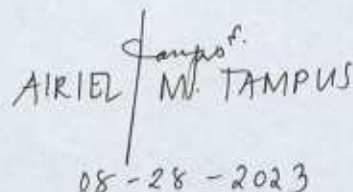 AIRIEL M. TAMPUS
08-28-2023